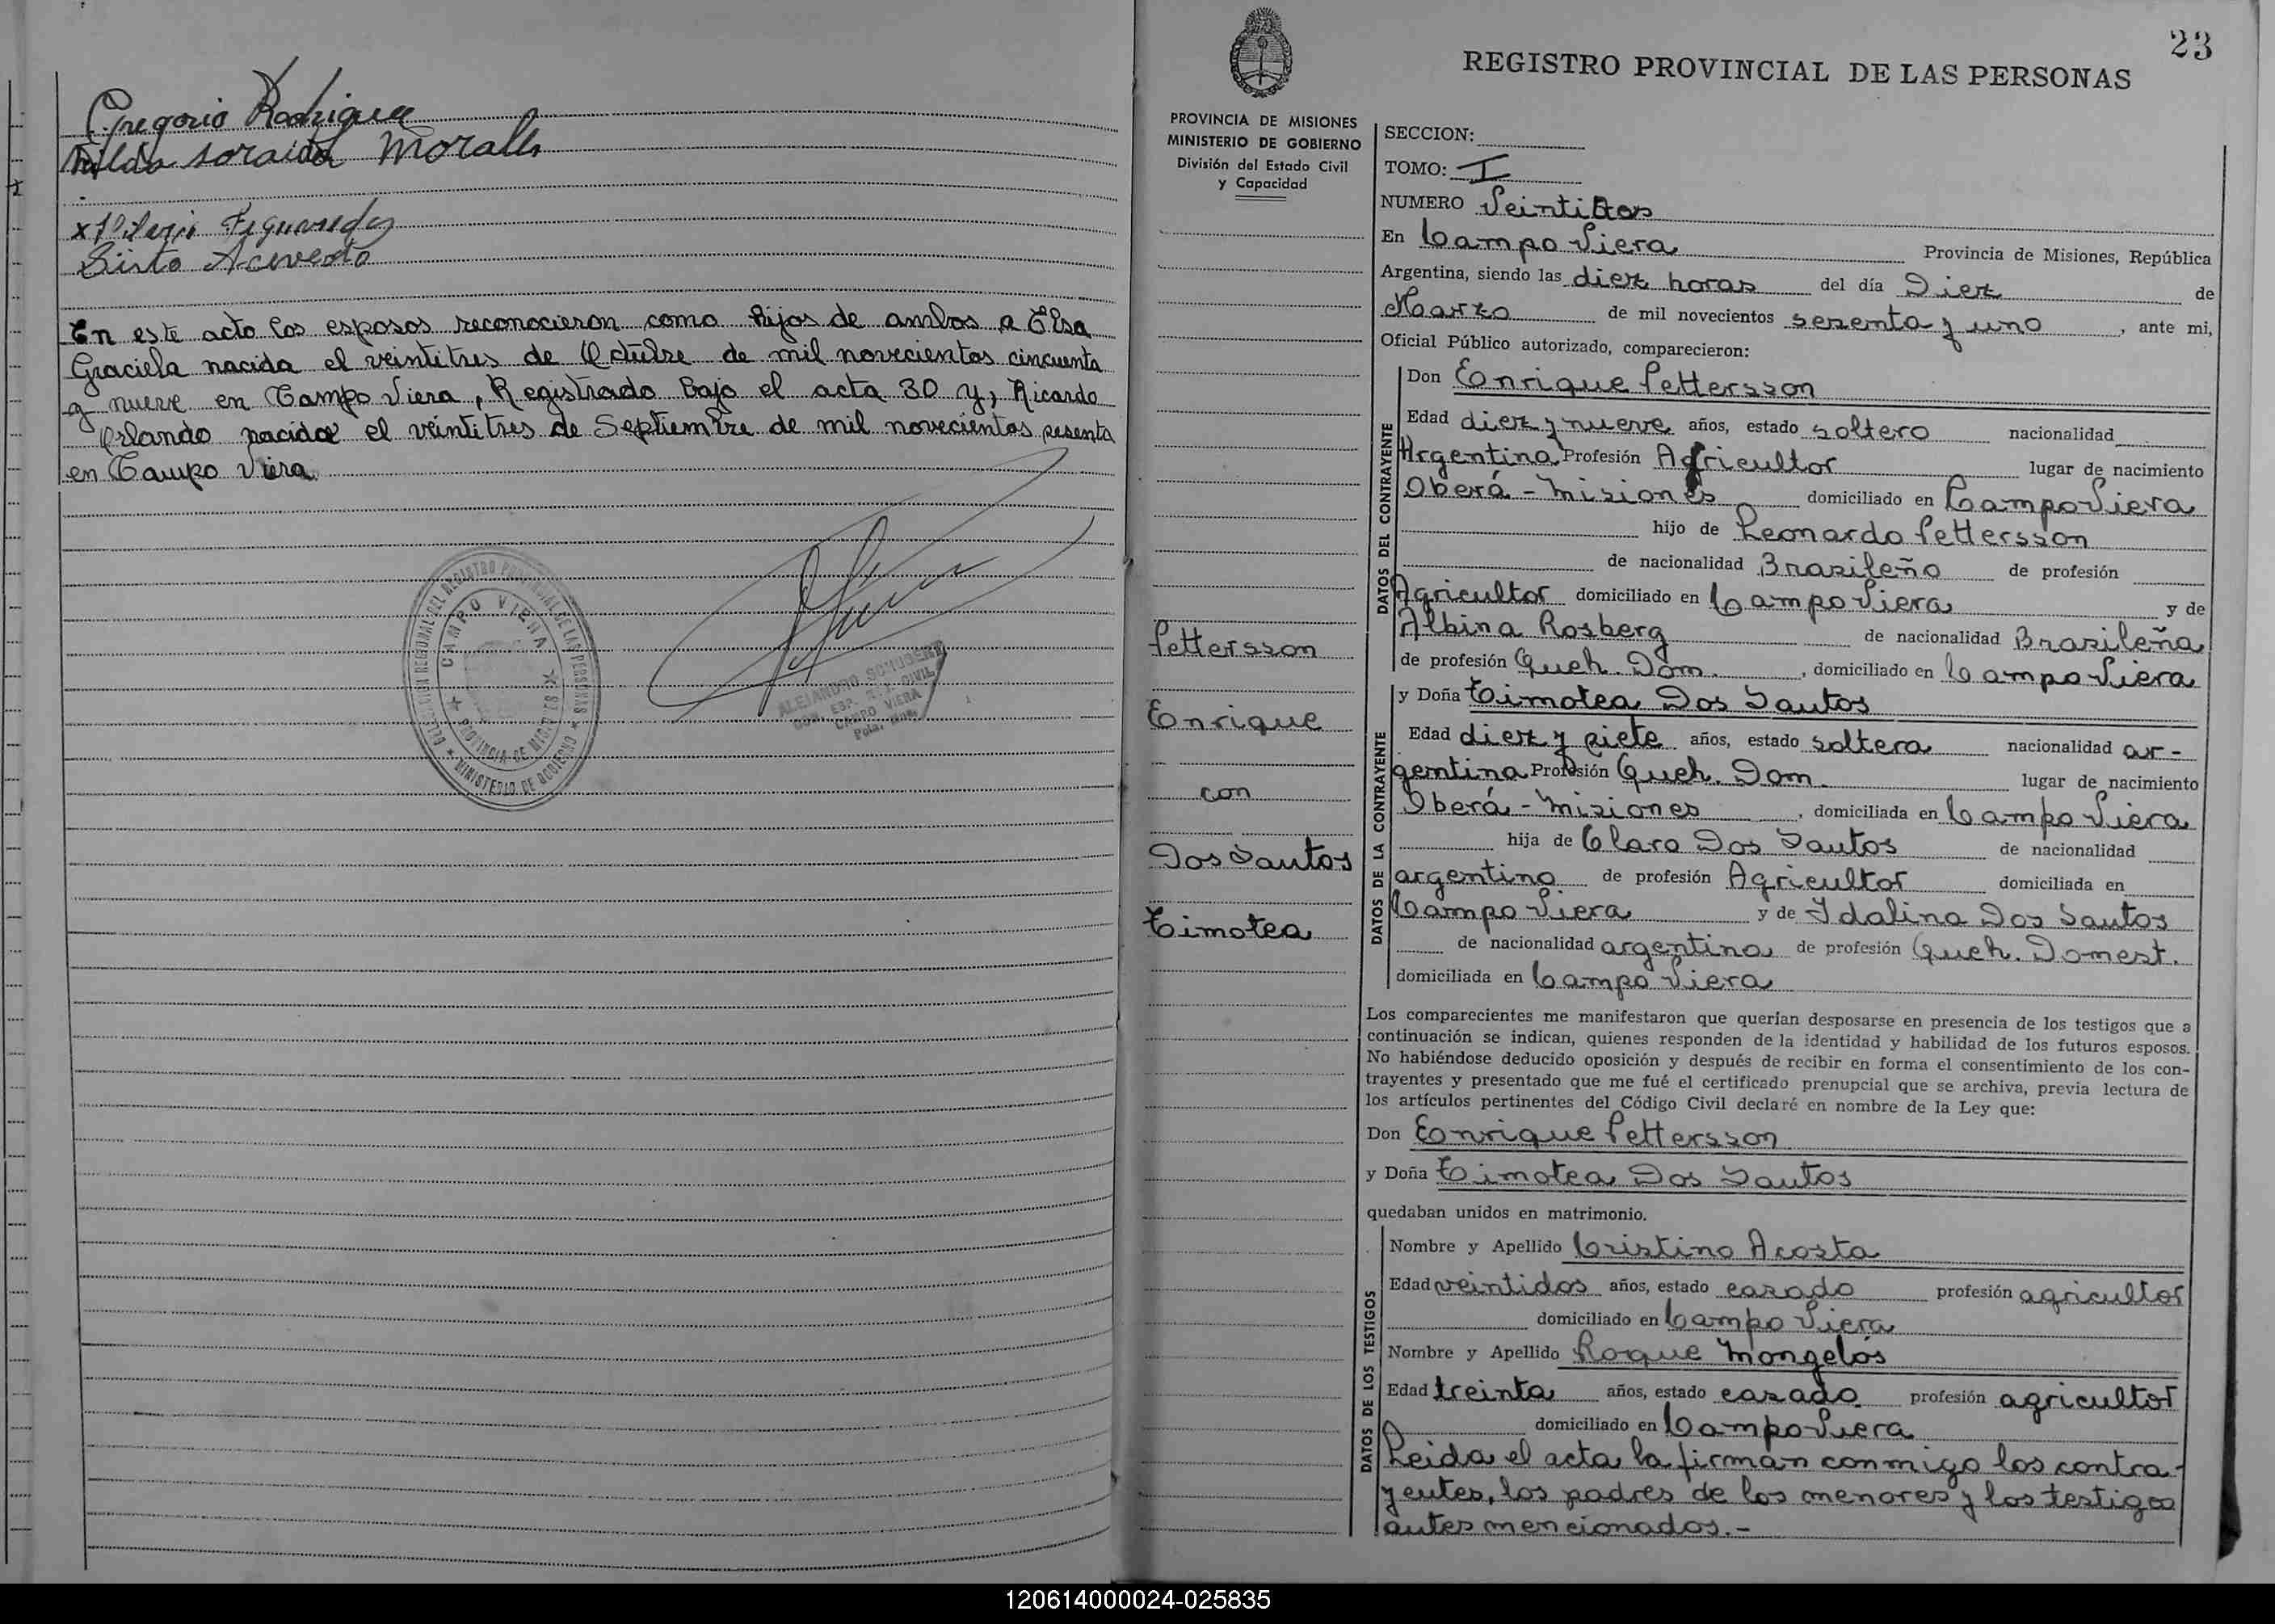 Gregorio Rodriguez
Hilda Soraida Morales
x Hilario Figueredo
Sisto Acevedo
En este acto los esposos reconocieron como hijos de ambos a Elsa
Graciela nacida el veintitres de Octubre de mil novecientos cincuenta
y nueve en Campo Viera, Registrado bajo el acta 30 y, Ricardo
Orlando nacido el veintitres de Septiembre de mil novecientos sesenta
en Campo Viera
DELEGACION REGIONAL DEL REGISTRO PROVINCIAL DE LAS PERSONAS
CAMPO VIERA
PROVINCIA DE MISIONES
MINISTERIO DE GOBIERNO
ALEJANDRO SCHUBERT
CAMPO VIERA
23
REGISTRO PROVINCIAL DE LAS PERSONAS
PROVINCIA DE MISIONES
MINISTERIO DE GOBIERNO
División del Estado Civil
y Capacidad
Pettersson
Enrique
con
Dos Santos
Timotea
SECCION:
TOMO: I
NUMERO Veintitres
En Campo Viera Provincia de Misiones, República
Argentina, siendo las diez horas del día Diez de
Marzo de mil novecientos sesenta y uno, ante mi,
Oficial Público autorizado, comparecieron:
DATOS DEL CONTRAYENTE
Don Enrique Pettersson
Edad diez y nueve años, estado soltero nacionalidad
Argentina Profesión Agricultor lugar de nacimiento
Oberá - Misiones domiciliado en Campo Viera
hijo de Leonardo Pettersson
de nacionalidad Brasileño de profesión
Agricultor domiciliado en Campo Viera y de
Albina Rosberg de nacionalidad Brasileña
de profesión Queh. Dom., domiciliado en Campo Viera
DATOS DE LA CONTRAYENTE
y Doña Timotea Dos Santos
Edad diez y siete años, estado soltera nacionalidad ar-
gentina Profesión Queh. Dom. lugar de nacimiento
Oberá - Misiones, domiciliada en Campo Viera
hija de Claro Dos Santos de nacionalidad
argentino de profesión Agricultor domiciliada en
Campo Viera y de Idalina Dos Santos
de nacionalidad argentina de profesión Queh. Domest.
domiciliada en Campo Viera
Los comparecientes me manifestaron que querían desposarse en presencia de los testigos que a
continuación se indican, quienes responden de la identidad y habilidad de los futuros esposos.
No habiéndose deducido oposición y después de recibir en forma el consentimiento de los con-
trayentes y presentado que me fué el certificado prenupcial que se archiva, previa lectura de
los artículos pertinentes del Código Civil declaré en nombre de la Ley que:
Don Enrique Pettersson
y Doña Timotea Dos Santos
quedaban unidos en matrimonio.
DATOS DE LOS TESTIGOS
Nombre y Apellido Cristino Acosta
Edad veintidos años, estado casado profesión agricultor
domiciliado en Campo Viera
Nombre y Apellido Roque Mongelos
Edad treinta años, estado casado profesión agricultor
domiciliado en Campo Viera
Leida el acta la firman conmigo los contra-
yentes, los padres de los menores y los testigos
antes mencionados.-
120614000024-025835